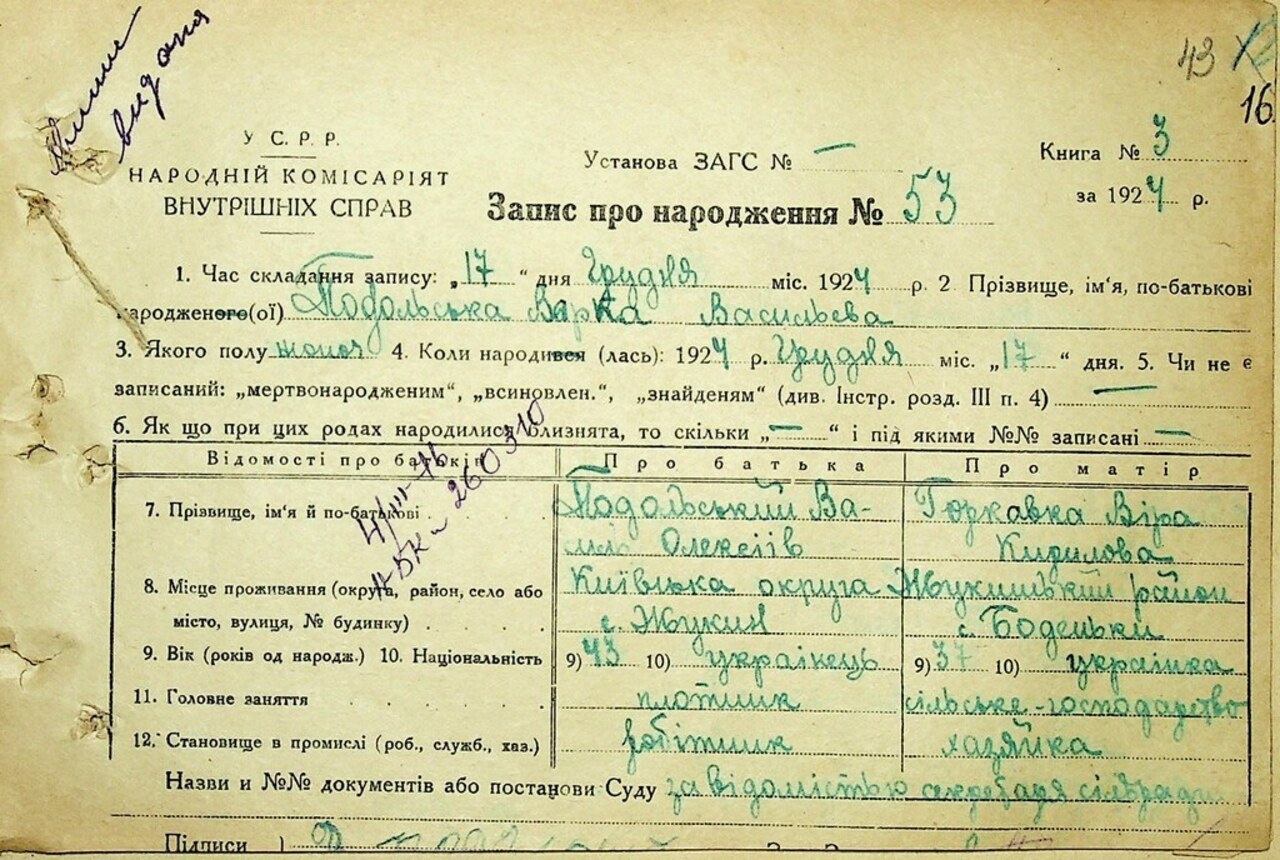 43
16
видана
У С. Р. Р.
НАРОДНІЙ КОМІСАРІЯТ
ВНУТРІШНІХ СПРАВ
Установа ЗАГС № —
Книга № 3
за 1924 р.
Запис про народження № 53
1. Час складання запису: „17“ дня Грудня міс. 1924 р. 2 Прізвище, ім'я, по-батькові
народженого(ої) Подольська Варка Васильева
3. Якого полу жоноч 4. Коли народився (лась): 1924 р. Грудня міс. „17“ дня. 5. Чи не є
записаний: „мертвонародженим“, „всиновлен.“, „знайденям“ (див. Інстр. розд. III п. 4) —
6. Як що при цих родах народились близнята, то скільки „—“ і під якими №№ записані —
Відомості про батьків Про батька Про матір
7. Прізвище, ім'я й по-батькові Подольський Ва- Горкавка Віра
силь Олексіїв Кирилова
8. Місце проживання (округа, район, село або Київська округа Жукинський район
місто, вулиця, № будинку) с. Жукин с. Боденьки
9. Вік (років од народж.) 10. Національність 9) 43 10) українець 9) 37 10) українка
11. Головне заняття плотник сільське-господарство
12. Становище в промислі (роб., служб., хаз.) робітник хазяйка
260310
Назви и №№ документів або постанови Суду за відомістью секретаря сільради
Підписи